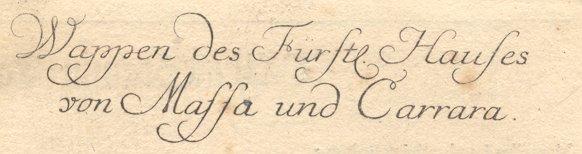 Wappen des Fürstl. Hauses
von Massa und Carrara.